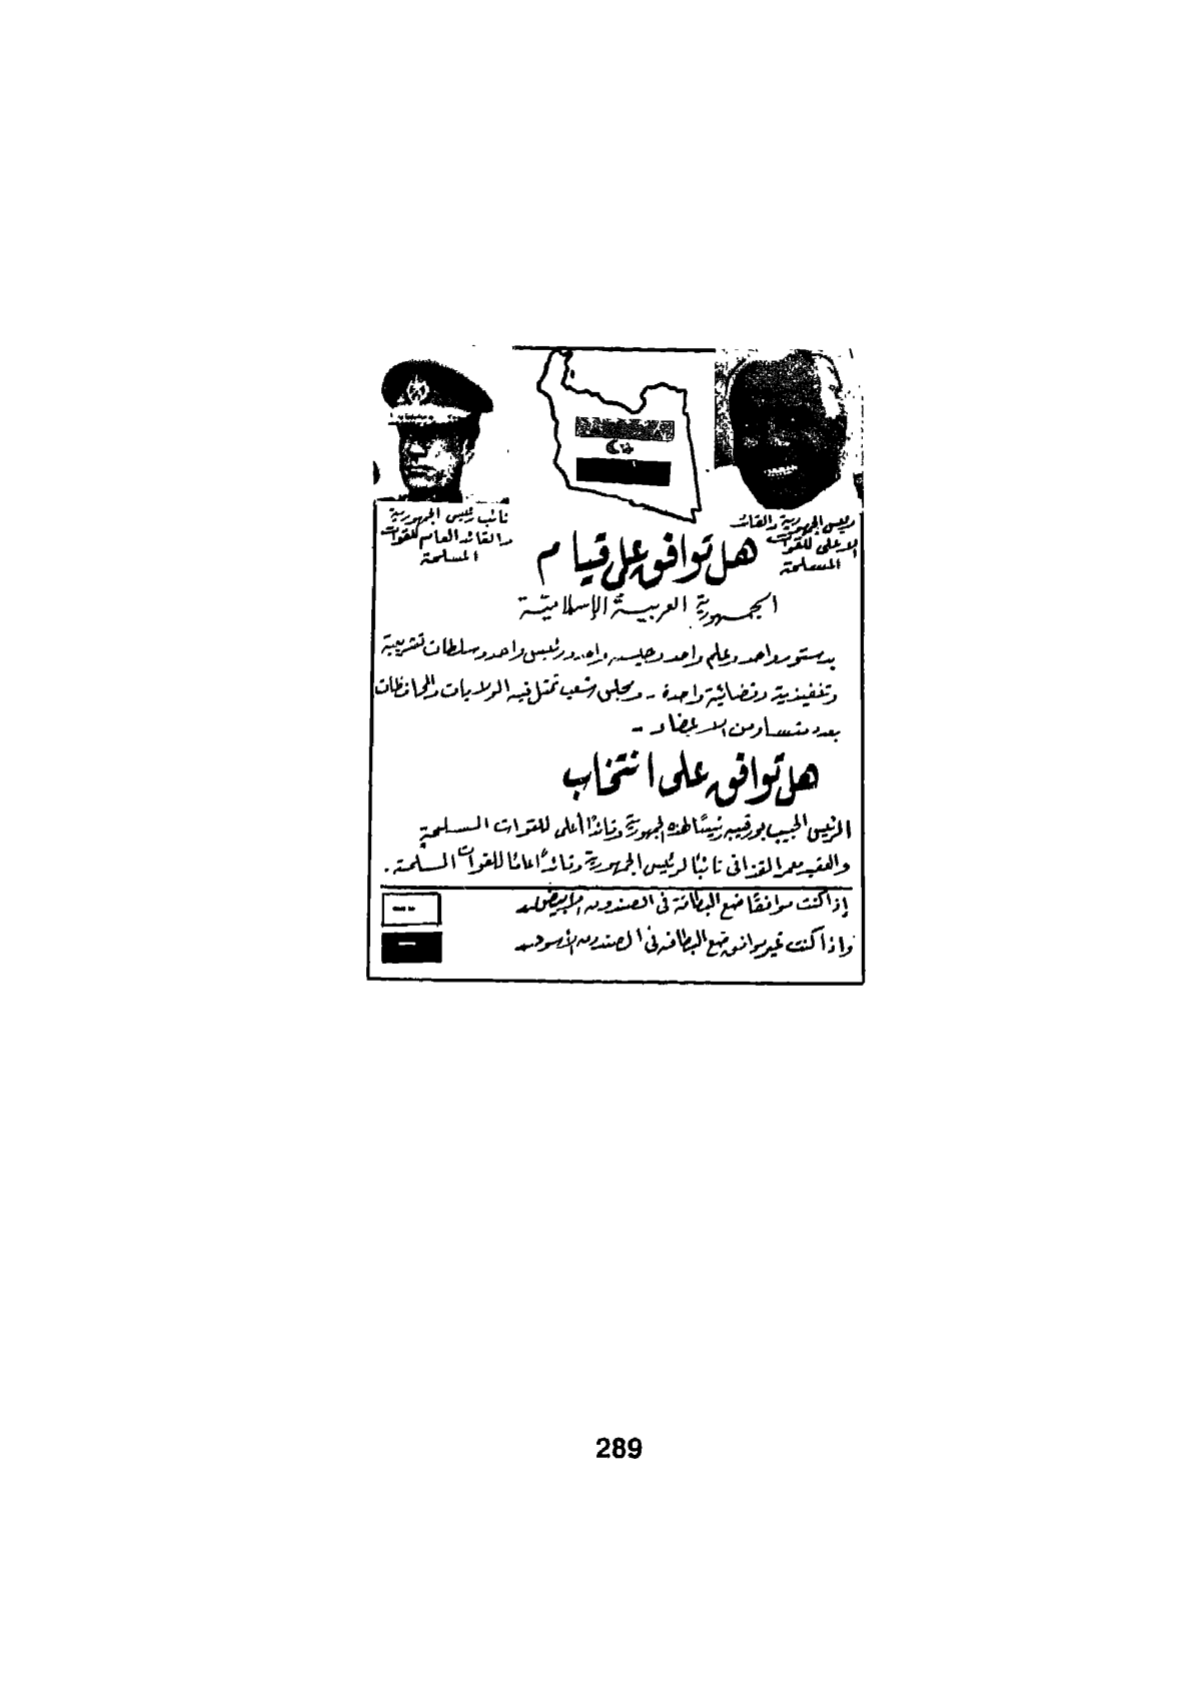 رئيس الجمهورية والقائد
الاعلى للقوات
المسلحة
نائب رئيس الجمهورية
والقائد العام للقوات
المسلحة
هل توافق على قيام
الجمهورية العربية الإسلامية
بدستور واحد وعلم واحد وجيش واحد ورئيس واحد وسلطات تشريعية
وتنفيذية وقضائية واحدة .. ومجلس شعب تمثل فيه الولايات والمحافظات
بعدد متساو من الاعضاء ..
هل توافق على انتخاب
الرئيس الحبيب بورقيبه رئيسًا لهذه الجمهورية وقائدًا أعلى للقوات المسلحة
والعقيد معمر القذافى نائبًا لرئيس الجمهورية وقائدًا عامًا للقوات المسلحة.
إذا كنت موافقًا ضع البطاقة فى الصندوق الأبيض
وإذا كنت غير موافق ضع البطاقة فى الصندوق الأسود
289